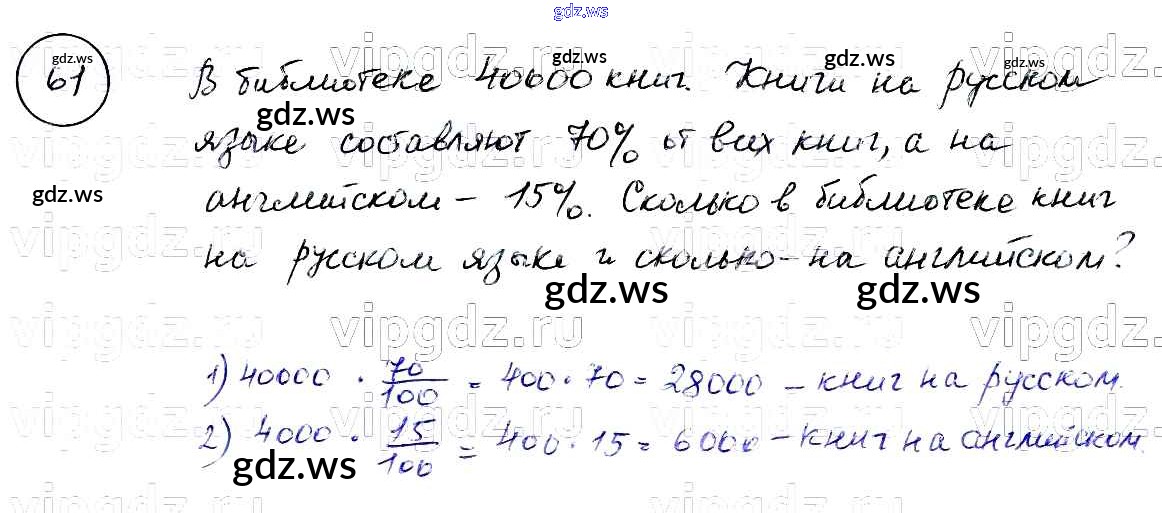 gdz.ws
61
gdz.ws
В библиотеке 40000 книг. Книги на русском
языке составляют 70% от всех книг, а на
английском - 15%. Сколько в библиотеке книг
на русском языке и сколько - на английском?
1) 40000 · 70/100 = 400 · 70 = 28000 - книг на русском.
2) 4000 · 15/100 = 400 · 15 = 6000 - книг на английском.
gdz.ws
gdz.ws
gdz.ws
gdz.ws
gdz.ws
gdz.ws
gdz.ws
vipgdz.ru
vipgdz.ru
vipgdz.ru
vipgdz.ru